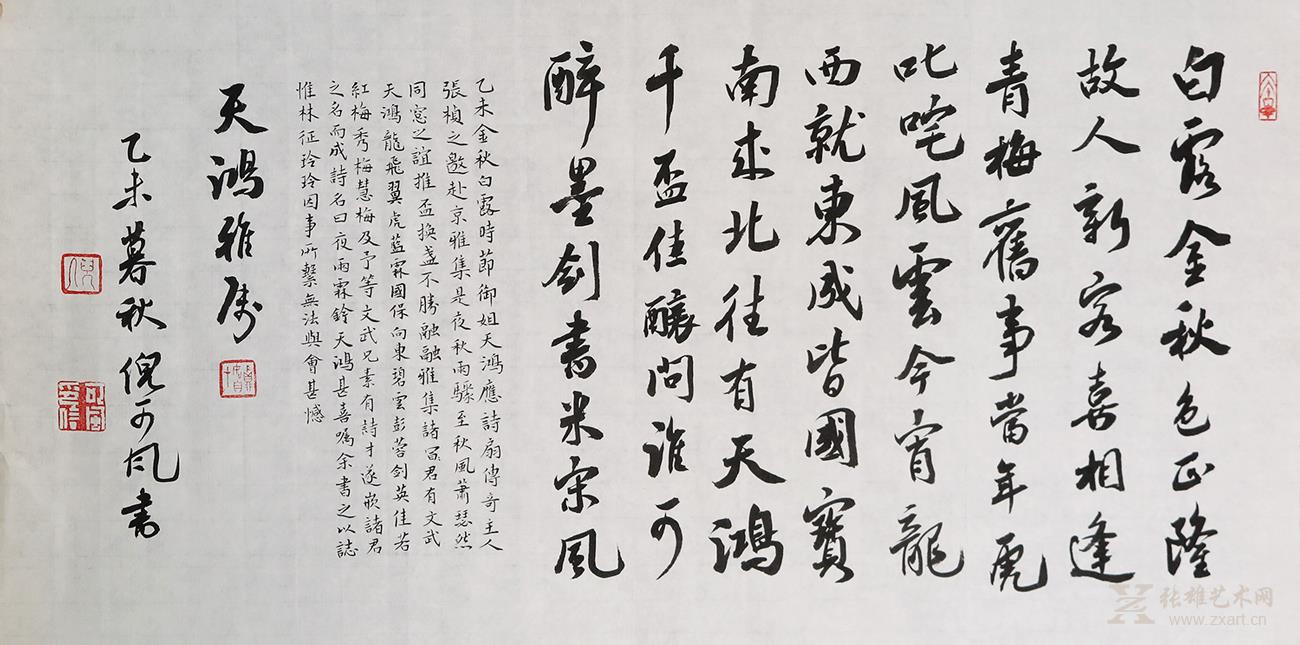 白露金秋色正隆
故人新客喜相逢
青梅舊事當年虎
叱咤風雲今宵龍
西就東成皆國寶
南來北往有天鴻
千盃佳釀問誰可
醉墨劍書米宋風
乙未金秋白露時節御姐天鴻應詩扇傳奇主人
張楨之邀赴京雅集是夜秋雨驟至秋風蕭瑟然
同窓之誼推盃換盞不勝融融雅集諸君有文武
天鴻龍飛翼虎藍霖國保向東碧雲彭蓉剑英佳若
紅梅秀梅慧梅及予等文武兄素有詩才遂嵌諸君
之名而成詩名曰夜雨霖鈴天鴻甚喜嘱余書之以誌
惟林征玲玲因事所繫無法與會甚憾
天鴻雅属
乙未暮秋倪可风書
张雄艺术网
www.zxart.cn